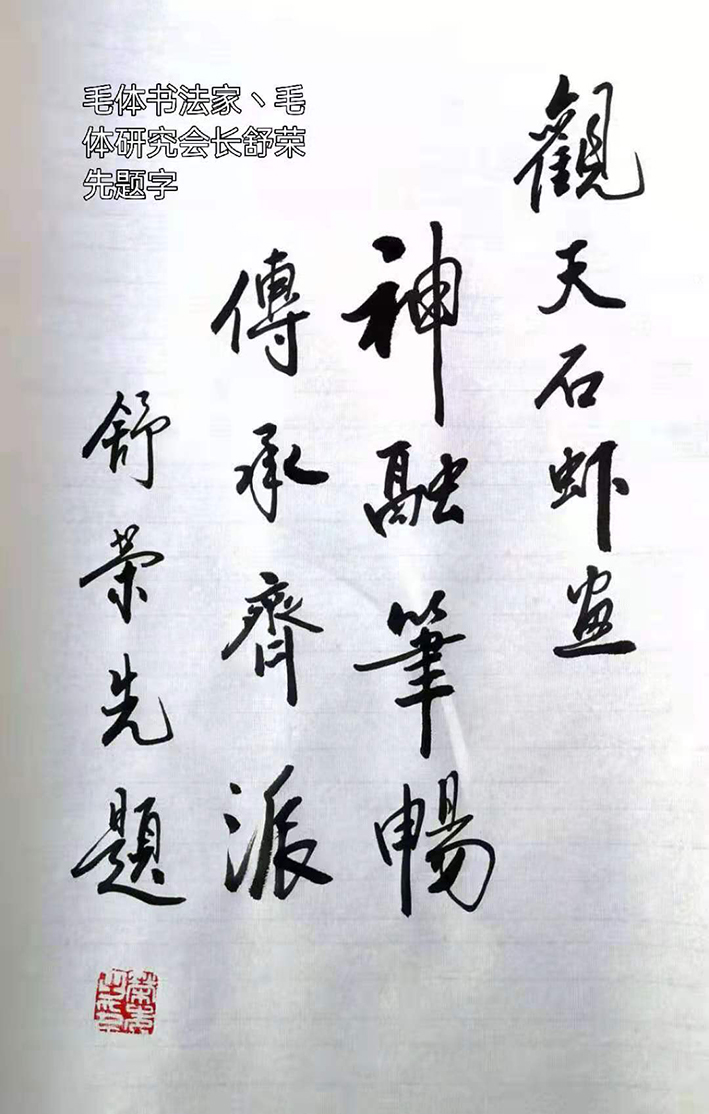 毛体书法家丶毛
体研究会长舒荣
先题字
觀天石虾画
神融筆暢
傳承齊派
舒荣先題